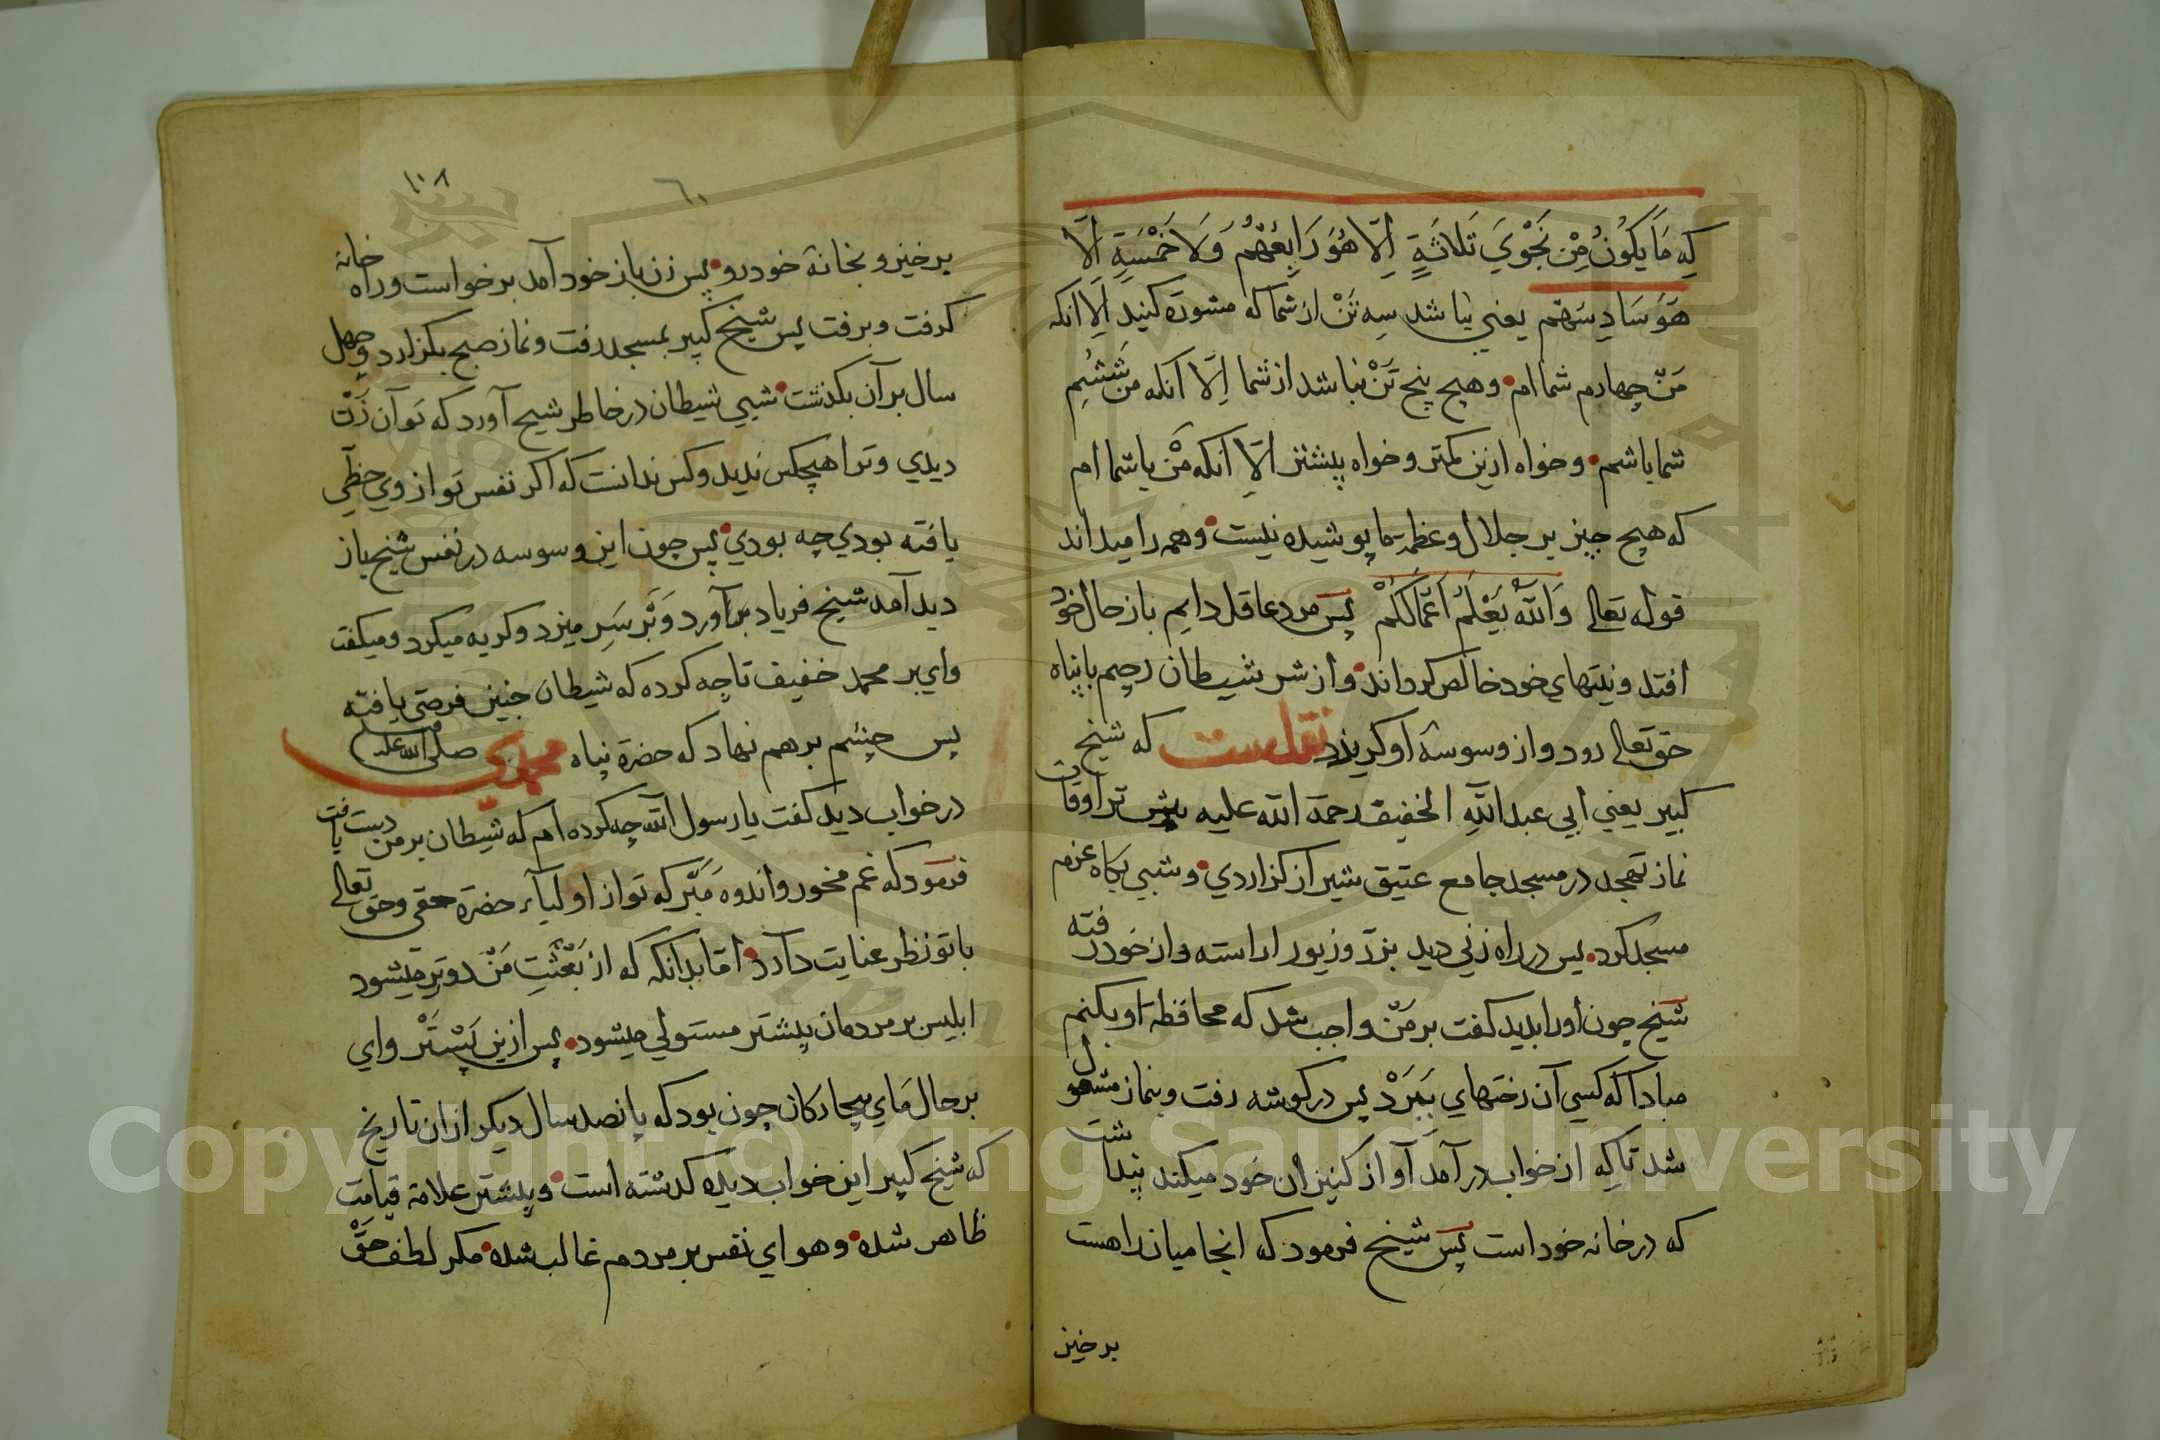 كِه مَا يَكُونُ مِنْ نَجْوَي ثَلَاثَةٍ اِلَّا هُوَ رَابِعُهُمْ وَلَا خَمْسَةٍ اِلَّا
هُوَ سَادِسُهُمْ يعني نباشد سِه تَنْ از شما كه مشورة كنيد اِلّا انكه
مَنْ چهارم شما ام وهيچ پنج تَنْ نباشد از شما اِلَّا آنكه من شَشُمِ
شما باشم وخواه ازين كمتر وخواه پيشتر اِلّا آنكه مَنْ با شما ام
كه هيچ چيز بر جلال وعظمة ما پوشيده نيست وهمه را ميداند
قوله تعالي وَاللّٰهُ يَعْلَمُ اَعْمَالَكُمْ پس مرد عاقل دايم باز حال خود
افتد ونيتهاي خود خالص كرداند واز شر شيطان رجيم با پناه
حق تعالي رود واز وسوسۀ او كريزد نقلست كه شيخ
كبير يعني ابي عبد اللّٰهِ الخفيف رحمة الله عليه بيشتر اوقات
نماز تهجد در مسجد جامع عتيق شيراز كزاردي وشبي پكاه عزم
مسجد كرد پس در راه زني ديد بزر وزيور اراسته واز خود رفته
شيخ چون اورا بديد كفت بر مَنْ واجب شد كه محافظة او بكنم
مبادا كه كسي آن رختهاي بَبَرَدْ پس در كوشه رفت وبنماز مشغول
شد تا كِه از خواب در آمد آواز كنيزان خود ميكند پنداشت
كه در خانه خود است پس شيخ فرمود كه انجا ميان راهست
برخيز
١٠٨
٦٠
برخيز وبخانۀ خود رو پس زن باز خود آمد برخواست وراه خانه
كرفت وبرفت پس شيخ كبير بمسجد رفت ونماز صبح بكزارد وچهل
سال بر آن بكذشت شبي شيطان در خاطر شيخ آورد كه تو آن زَنْ
ديدي وترا هيچكس نديد وكس ندانست كه اكر نفس تو از وي حظّي
يافته بودي چه بودي پس چون اين وسوسه در نفس شيخ باز
ديد آمد شيخ فرياد برآورد وَبَر سَرِ ميزد وكريه ميكرد وميكفت
واي بر محمد خفيف تا چه كرده كه شيطان چنين فرصتي يافته
پس چشم برهم نهاد كه حضرة پناه محمدي صلى الله عليه وسلم
در خواب ديد كفت يا رسول اللّٰه چه كرده ام كه شيطان بر من دست يافت
فرمود كه غم مخور واندوه مَبَر كه تو از اوليآء حضرة حقي وحق تعالي
با تو نظر عنايت دارد امّا بدانكه كه از بَعْثَتِ مَنْ دوتر ميشود
ابليس بر مردمان پيشتر مستولي ميشود پس ازين پَسْتَرْ واي
بر حال مَاي بيچاركان چون بود كه پانصد سال ديكر از ان تاريخ
كه شيخ كبير اين خواب ديده كذشته است وپيشتر علامة قيامت
ظاهر شده وهواي نفس بر مردم غالب شده مكر لطف حَقْ
Copyright © King Saud University